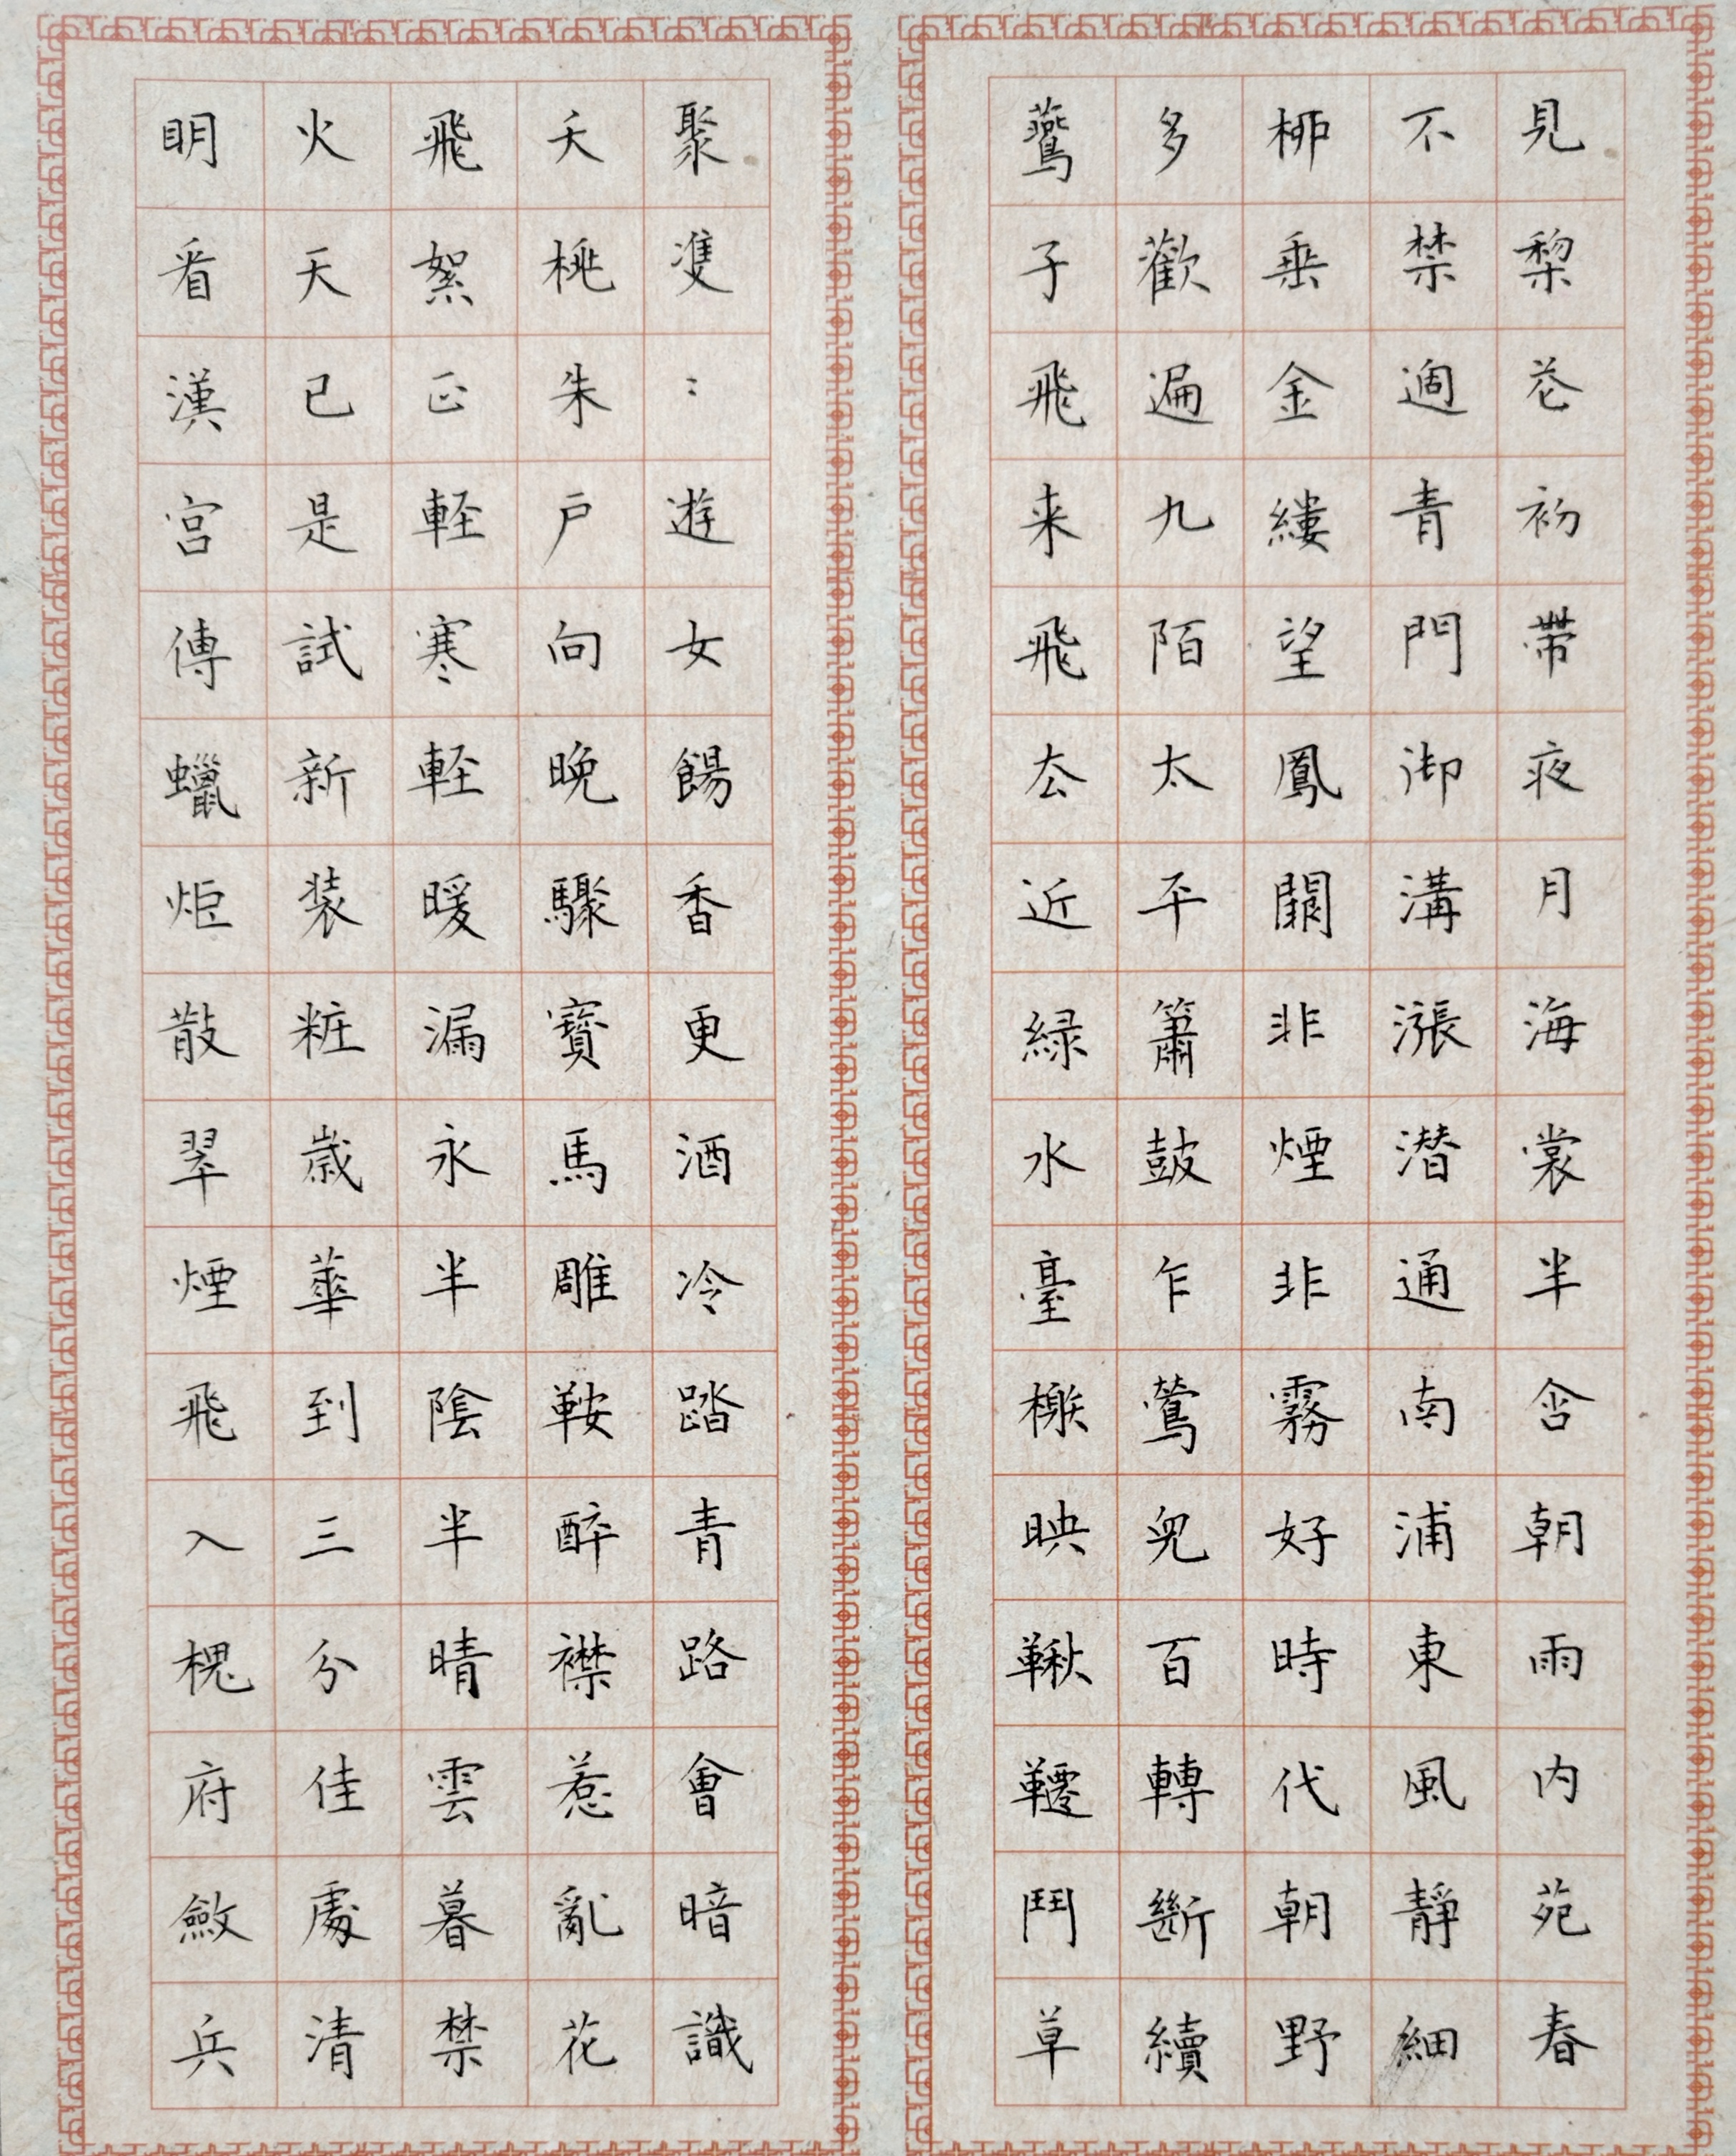 見梨花初帶夜月海裳半含朝雨内苑春
不禁過青門御溝漲潜通南浦東風靜細
柳垂金縷望鳳闕非煙非霧好時代朝野
多歡遍九陌太平簫鼓乍鶯兒百轉斷續
鷰子飛来飛去近緑水臺榭映鞦韆鬥草
聚雙〻遊女餳香更酒冷踏青路會暗識
夭桃朱戶向晚驟寶馬雕鞍醉襟惹亂花
飛絮正輕寒輕暖漏永半陰半晴雲暮禁
火天已是試新装粧歲華到三分佳處清
明看漢宮傳蠟炬散翠煙飛入槐府斂兵